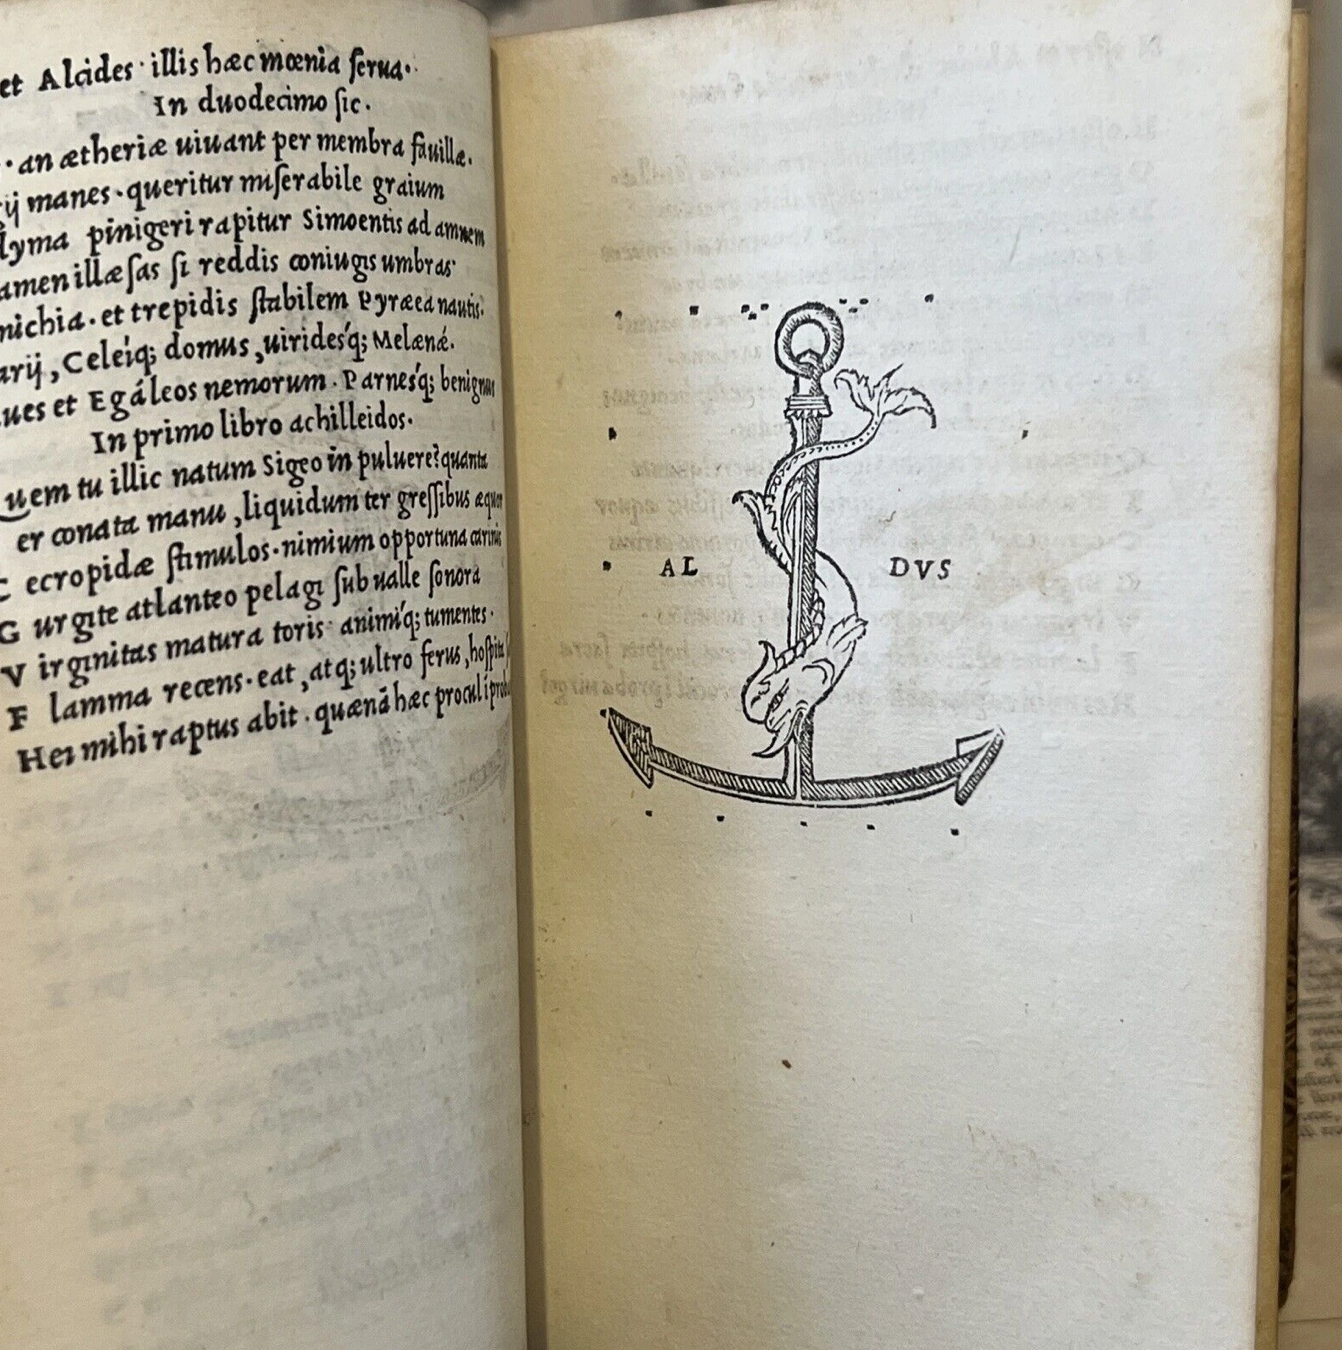 et Alcides · illis hæc mœnia ſerua·
In duodecimo ſic·
· an ætheriæ uiuant per membra fauillæ.
manes · queritur miſerabile graium
pinigeri rapitur Simoentis ad amnem
illæſas ſi reddis coniugis umbras·
et trepidis ſtabilem Pyræea nautis·
Celeiq; domus, uiridesq́; Melænæ.
et Egáleos nemorum · Parnesq́; benignus
In primo libro achilleidos·
uem tu illic natum Sigeo in puluere? quanta
er conata manu, liquidum ter greſſibus æquor
C ecropidæ ſtimulos · nimium opportuna carinis
G urgite atlanteo pelagi ſub ualle ſonora
V irginitas matura toris· animiq́; tumentes·
F lamma recens · eat, atq; ultro ferus, hoſpita
Hei mihi raptus abit · quænā hæc procul īproba
AL DVS